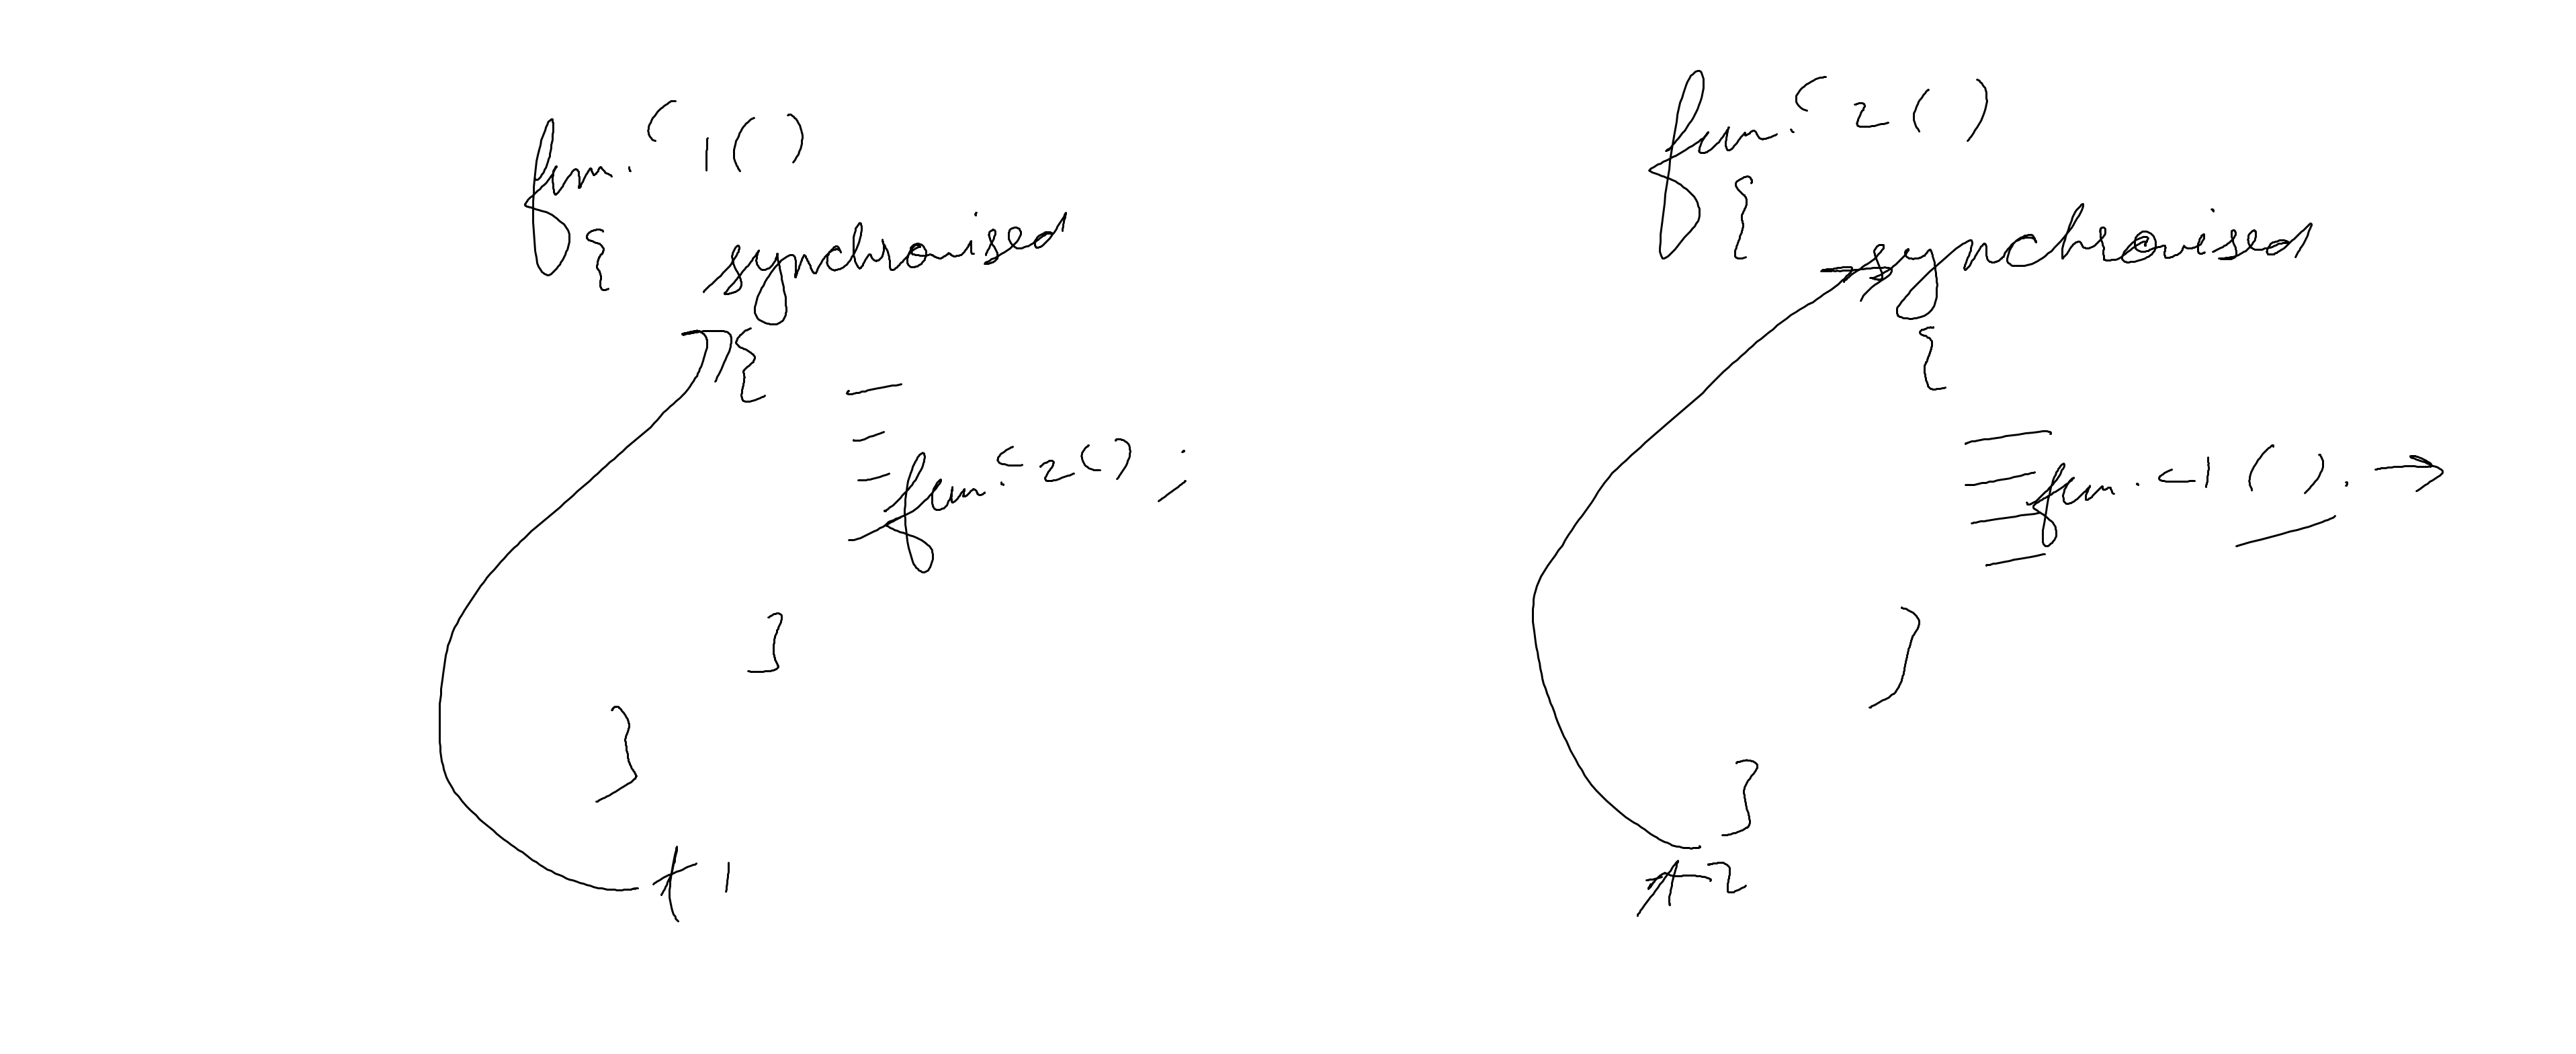 func 1()
{
synchronised
{
func 2();
}
}
t1
func 2()
{
synchronised
{
func 1(). →
}
}
t2